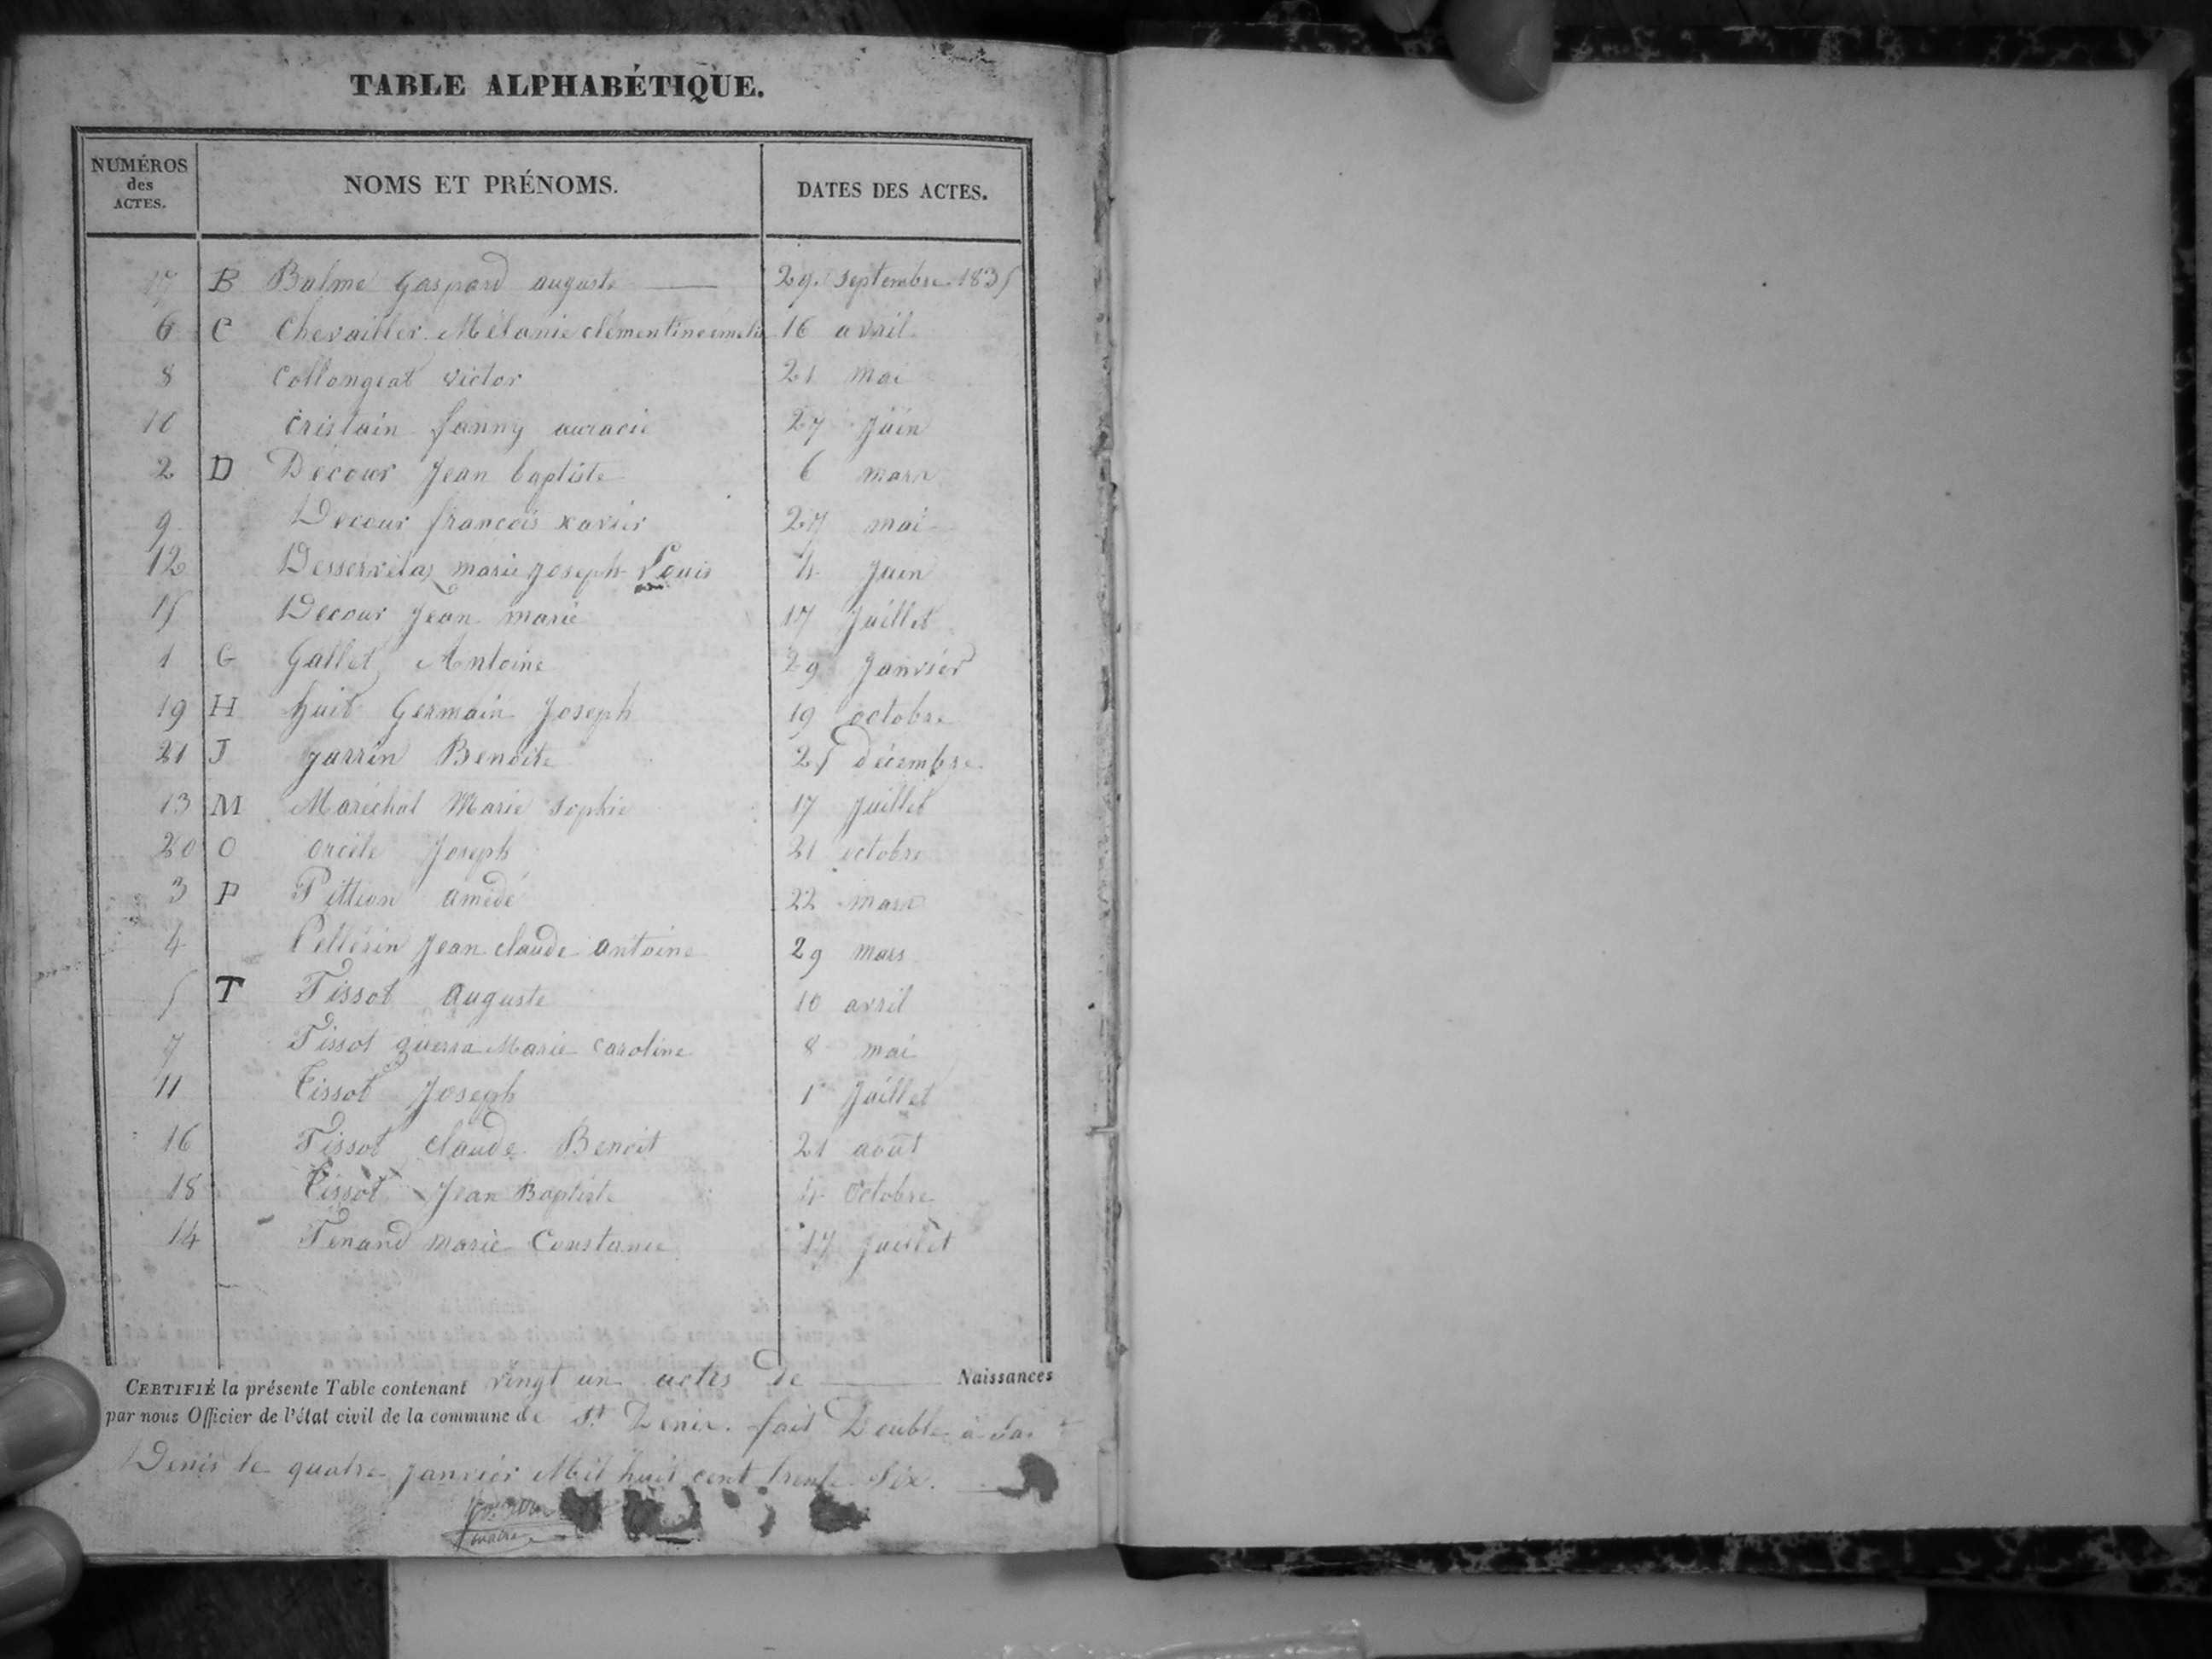 TABLE ALPHABÉTIQUE.
NUMÉROS des ACTES. NOMS ET PRÉNOMS. DATES DES ACTES.
17 B Balme Gaspard auguste 29. septembre 1835
6 C Chevallier Mélanie clémentine 16 avril
8 Collongeat victor 21 mai
10 Cristain fanny 27 juin
2 D Décour Jean baptiste 6 mars
9 Decour françois xavier 27 mai
12 marie joseph Louis 4 juin
15 Decour Jean marie 17 Juillet
1 G Gallet Antoine 29 Janvier
19 H huit Germain Joseph 19 octobre
21 J jarrin Benoite 25 décembre
13 M Maréchal Marie Sophie 17 Juillet
20 O orcèle Joseph 21 octobre
3 P Pittion amédé 22 mars
4 Pellerin Jean claude antoine 29 mars
5 T Tissot auguste 10 avril
7 Tissot guerra Marie caroline 8 mai
11 Tissot Joseph 1er Juillet
16 Tissot claude Benoit 21 août
18 Tissot Jean Baptiste 4 octobre
14 Tenand marie Constance 17 juillet
CERTIFIÉ la présente Table contenant vingt un actes de Naissances
par nous Officier de l'état civil de la commune de St Denis. fait Double à
Denis le quatre janvier Mil huit cent trente six.
maire